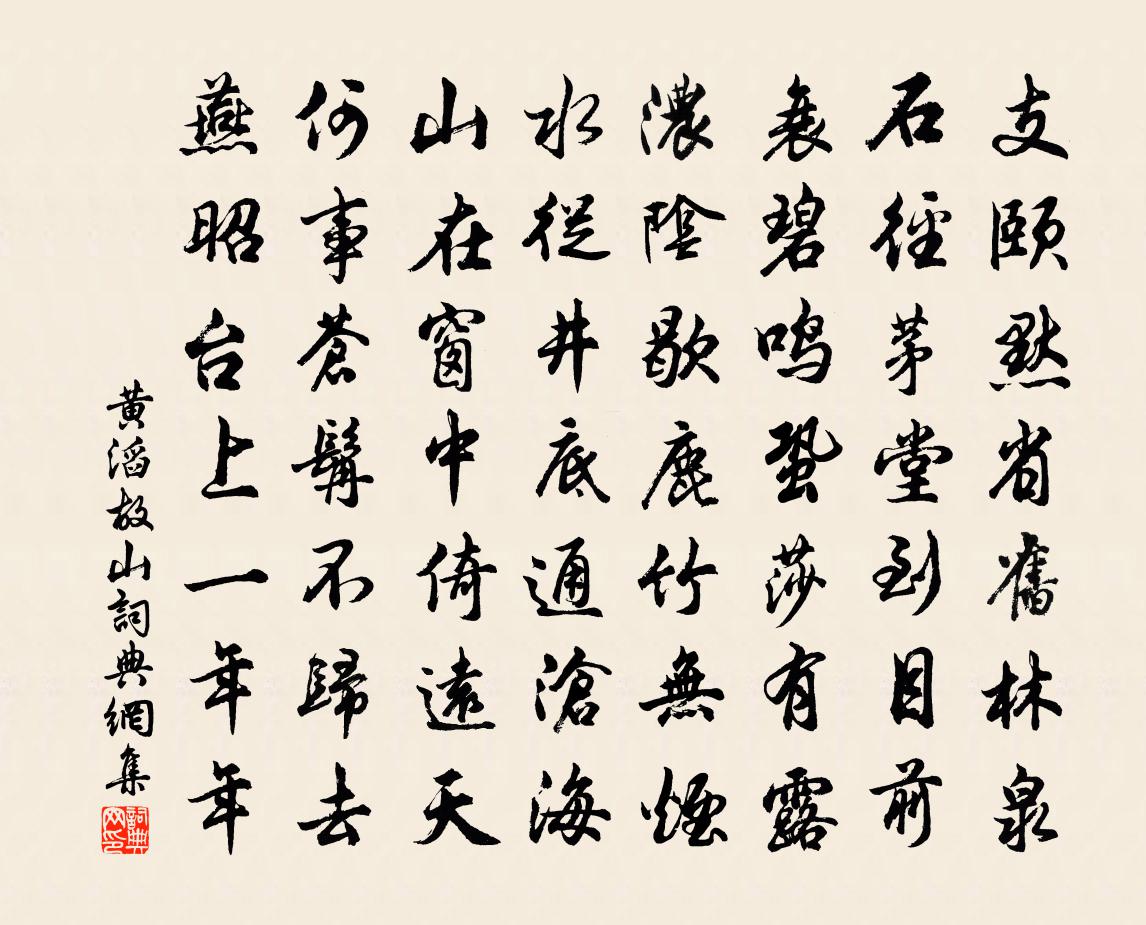 支頤默省舊林泉
石徑茅堂到目前
衰碧鳴蛩莎有露
濃陰歇鹿竹無煙
水從井底通滄海
山在窗中倚遠天
何事蒼髯不歸去
燕昭台上一年年
黃滔故山詞典網集
詞典網印